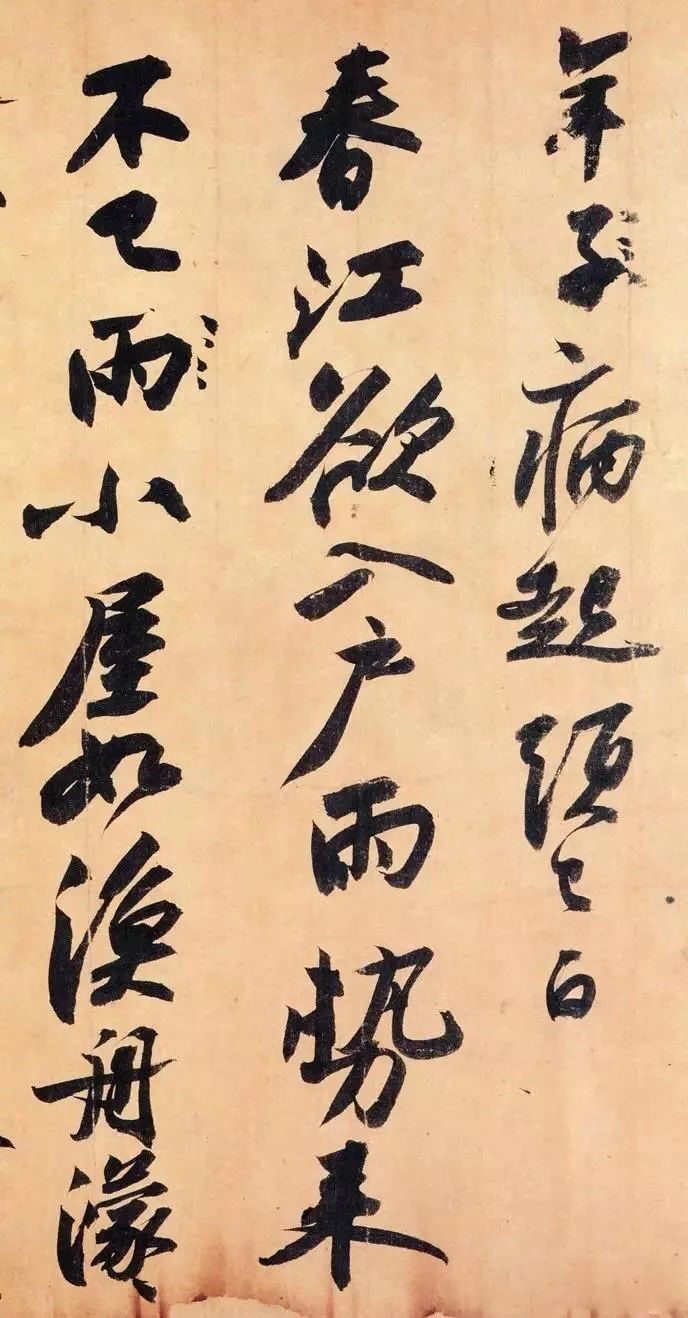 年子病起頭已白
春江欲入戶雨勢來
不已雨小屋如漁舟濛〻